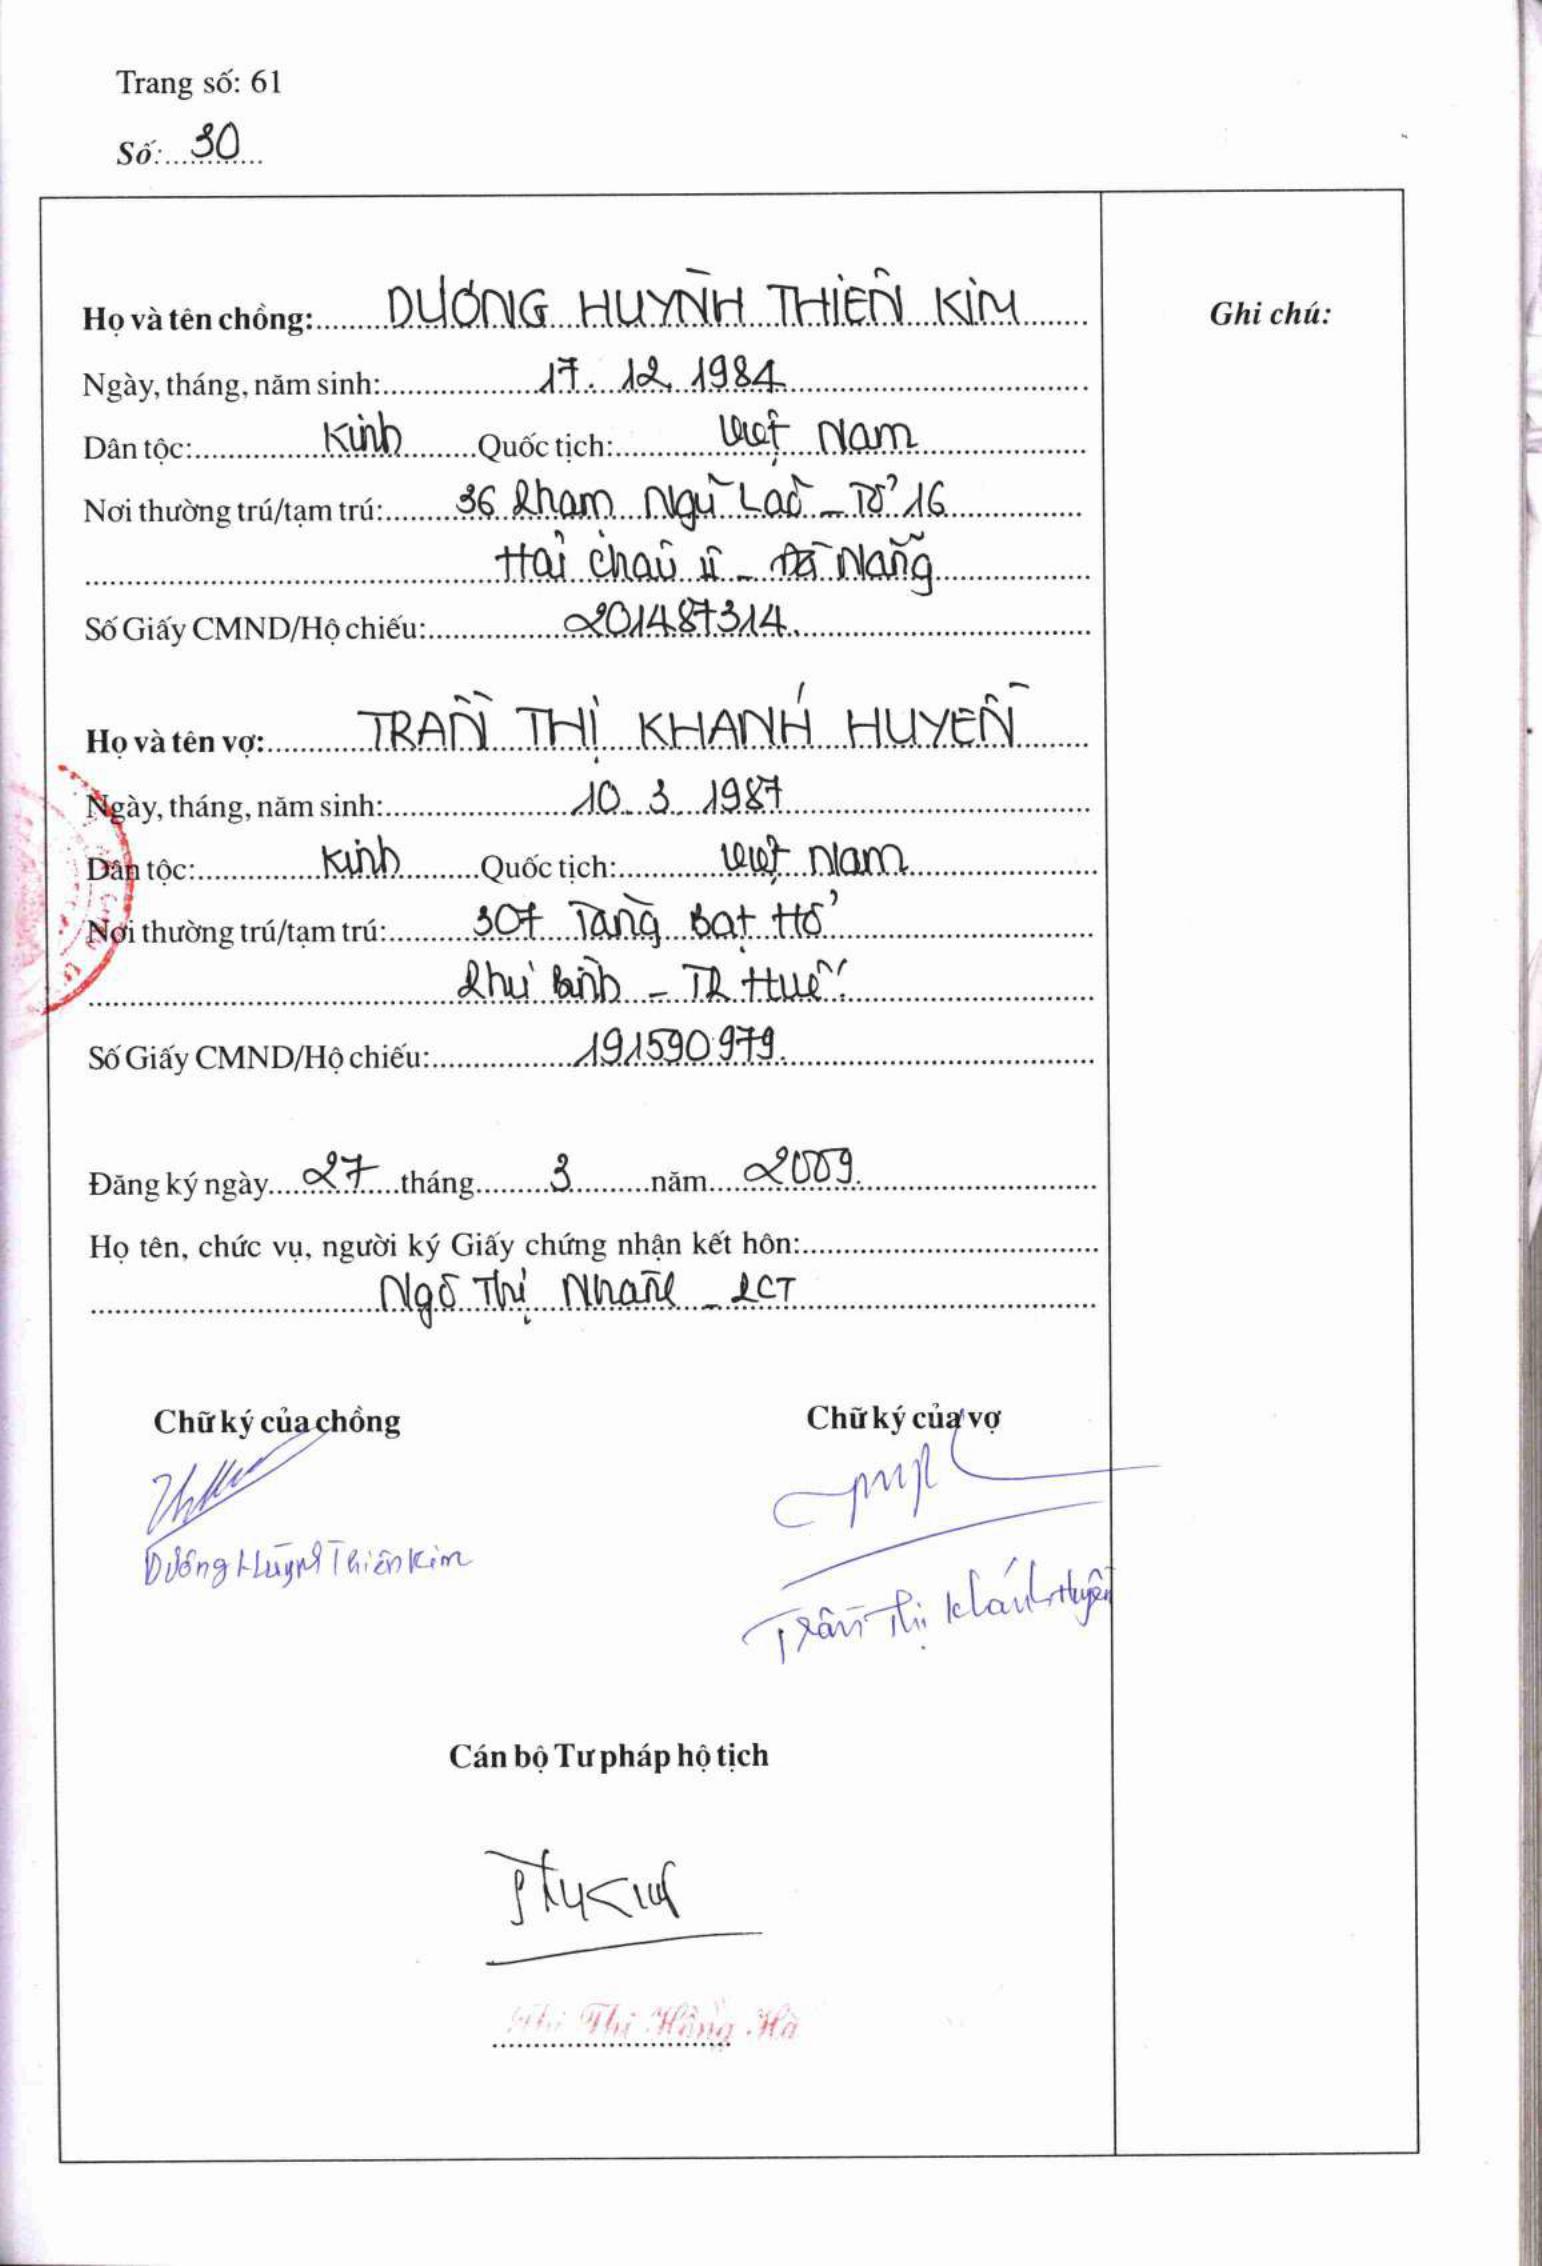 Trang số: 61
Số: 30
Họ và tên chồng: DƯƠNG HUỲNH THIÊN KIM
Ghi chú:
Ngày, tháng, năm sinh: 17. 12. 1984
Dân tộc: Kinh Quốc tịch: Việt Nam
Nơi thường trú/tạm trú: 36 Phạm Ngũ Lão - Tổ 16
Hải Châu II - Đà Nẵng
Số Giấy CMND/Hộ chiếu: 201487314
Họ và tên vợ: TRẦN THỊ KHÁNH HUYỀN
Ngày, tháng, năm sinh: 10. 3. 1987
Dân tộc: Kinh Quốc tịch: Việt Nam
Nơi thường trú/tạm trú: 307 Tăng Bạt Hổ
Phú Bình - TP Huế.
Số Giấy CMND/Hộ chiếu: 191590979.
Đăng ký ngày 27 tháng 3 năm 2009.
Họ tên, chức vụ, người ký Giấy chứng nhận kết hôn:
Ngô Thị Nhàn - PCT
Chữ ký của chồng Chữ ký của vợ
Dương Huỳnh Thiên Kim
Trần Thị Khánh Huyền
Cán bộ Tư pháp hộ tịch
Thị Hồng Hà